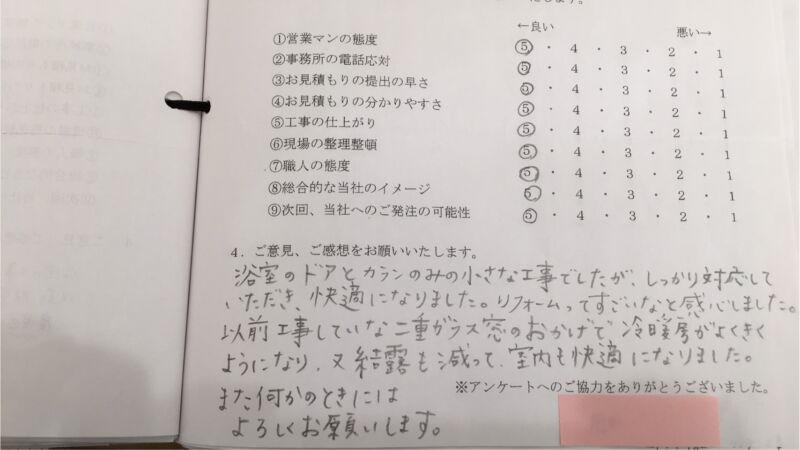 ←良い 悪い→
①営業マンの態度 ⑤ ・ 4 ・ 3 ・ 2 ・ 1
②事務所の電話応対 ⑤ ・ 4 ・ 3 ・ 2 ・ 1
③お見積もりの提出の早さ ⑤ ・ 4 ・ 3 ・ 2 ・ 1
④お見積もりの分かりやすさ ⑤ ・ 4 ・ 3 ・ 2 ・ 1
⑤工事の仕上がり ⑤ ・ 4 ・ 3 ・ 2 ・ 1
⑥現場の整理整頓 ⑤ ・ 4 ・ 3 ・ 2 ・ 1
⑦職人の態度 ⑤ ・ 4 ・ 3 ・ 2 ・ 1
⑧総合的な当社のイメージ ⑤ ・ 4 ・ 3 ・ 2 ・ 1
⑨次回、当社へのご発注の可能性 ⑤ ・ 4 ・ 3 ・ 2 ・ 1
4．ご意見、ご感想をお願いいたします。
浴室のドアとカランのみの小さな工事でしたが、しっかり対応して
いただき、快適になりました。リフォームってすごいなと感心しました。
以前工事していな二重ガラス窓のおかげで、冷暖房がよくきく
ようになり、又結露も減って、室内も快適になりました。
また何かのときには
よろしくお願いします。
※アンケートへのご協力をありがとうございました。